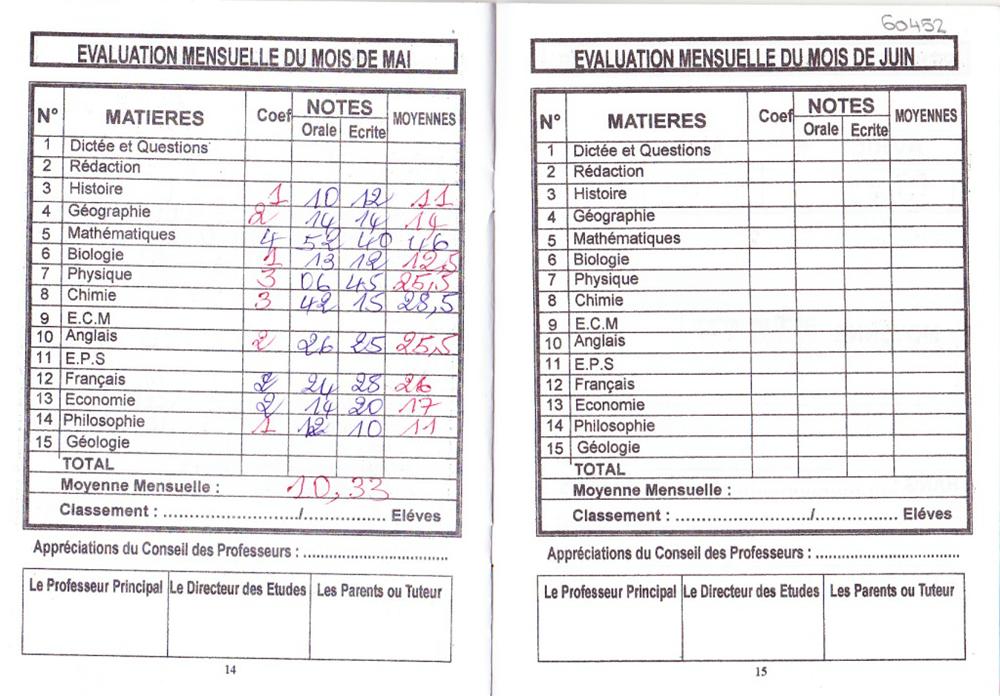 EVALUATION MENSUELLE DU MOIS DE MAI
N° MATIERES Coef NOTES MOYENNES
Orale Ecrite
1 Dictée et Questions
2 Rédaction
3 Histoire 1 10 12 11
4 Géographie 2 14 14 14
5 Mathématiques 4 52 40 46
6 Biologie 1 13 12 12,5
7 Physique 3 06 45 25,5
8 Chimie 3 42 15 28,5
9 E.C.M
10 Anglais 2 26 25 25,5
11 E.P.S
12 Français 2 24 28 26
13 Economie 2 14 20 17
14 Philosophie 1 12 10 11
15 Géologie
TOTAL
Moyenne Mensuelle : 10,33
Classement : ........................./................ Eléves
Appréciations du Conseil des Professeurs : ............................
Le Professeur Principal Le Directeur des Etudes Les Parents ou Tuteur
14
60452
EVALUATION MENSUELLE DU MOIS DE JUIN
N° MATIERES Coef NOTES MOYENNES
Orale Ecrite
1 Dictée et Questions
2 Rédaction
3 Histoire
4 Géographie
5 Mathématiques
6 Biologie
7 Physique
8 Chimie
9 E.C.M
10 Anglais
11 E.P.S
12 Français
13 Economie
14 Philosophie
15 Géologie
TOTAL
Moyenne Mensuelle :
Classement : ........................./................ Eléves
Appréciations du Conseil des Professeurs : ............................
Le Professeur Principal Le Directeur des Etudes Les Parents ou Tuteur
15